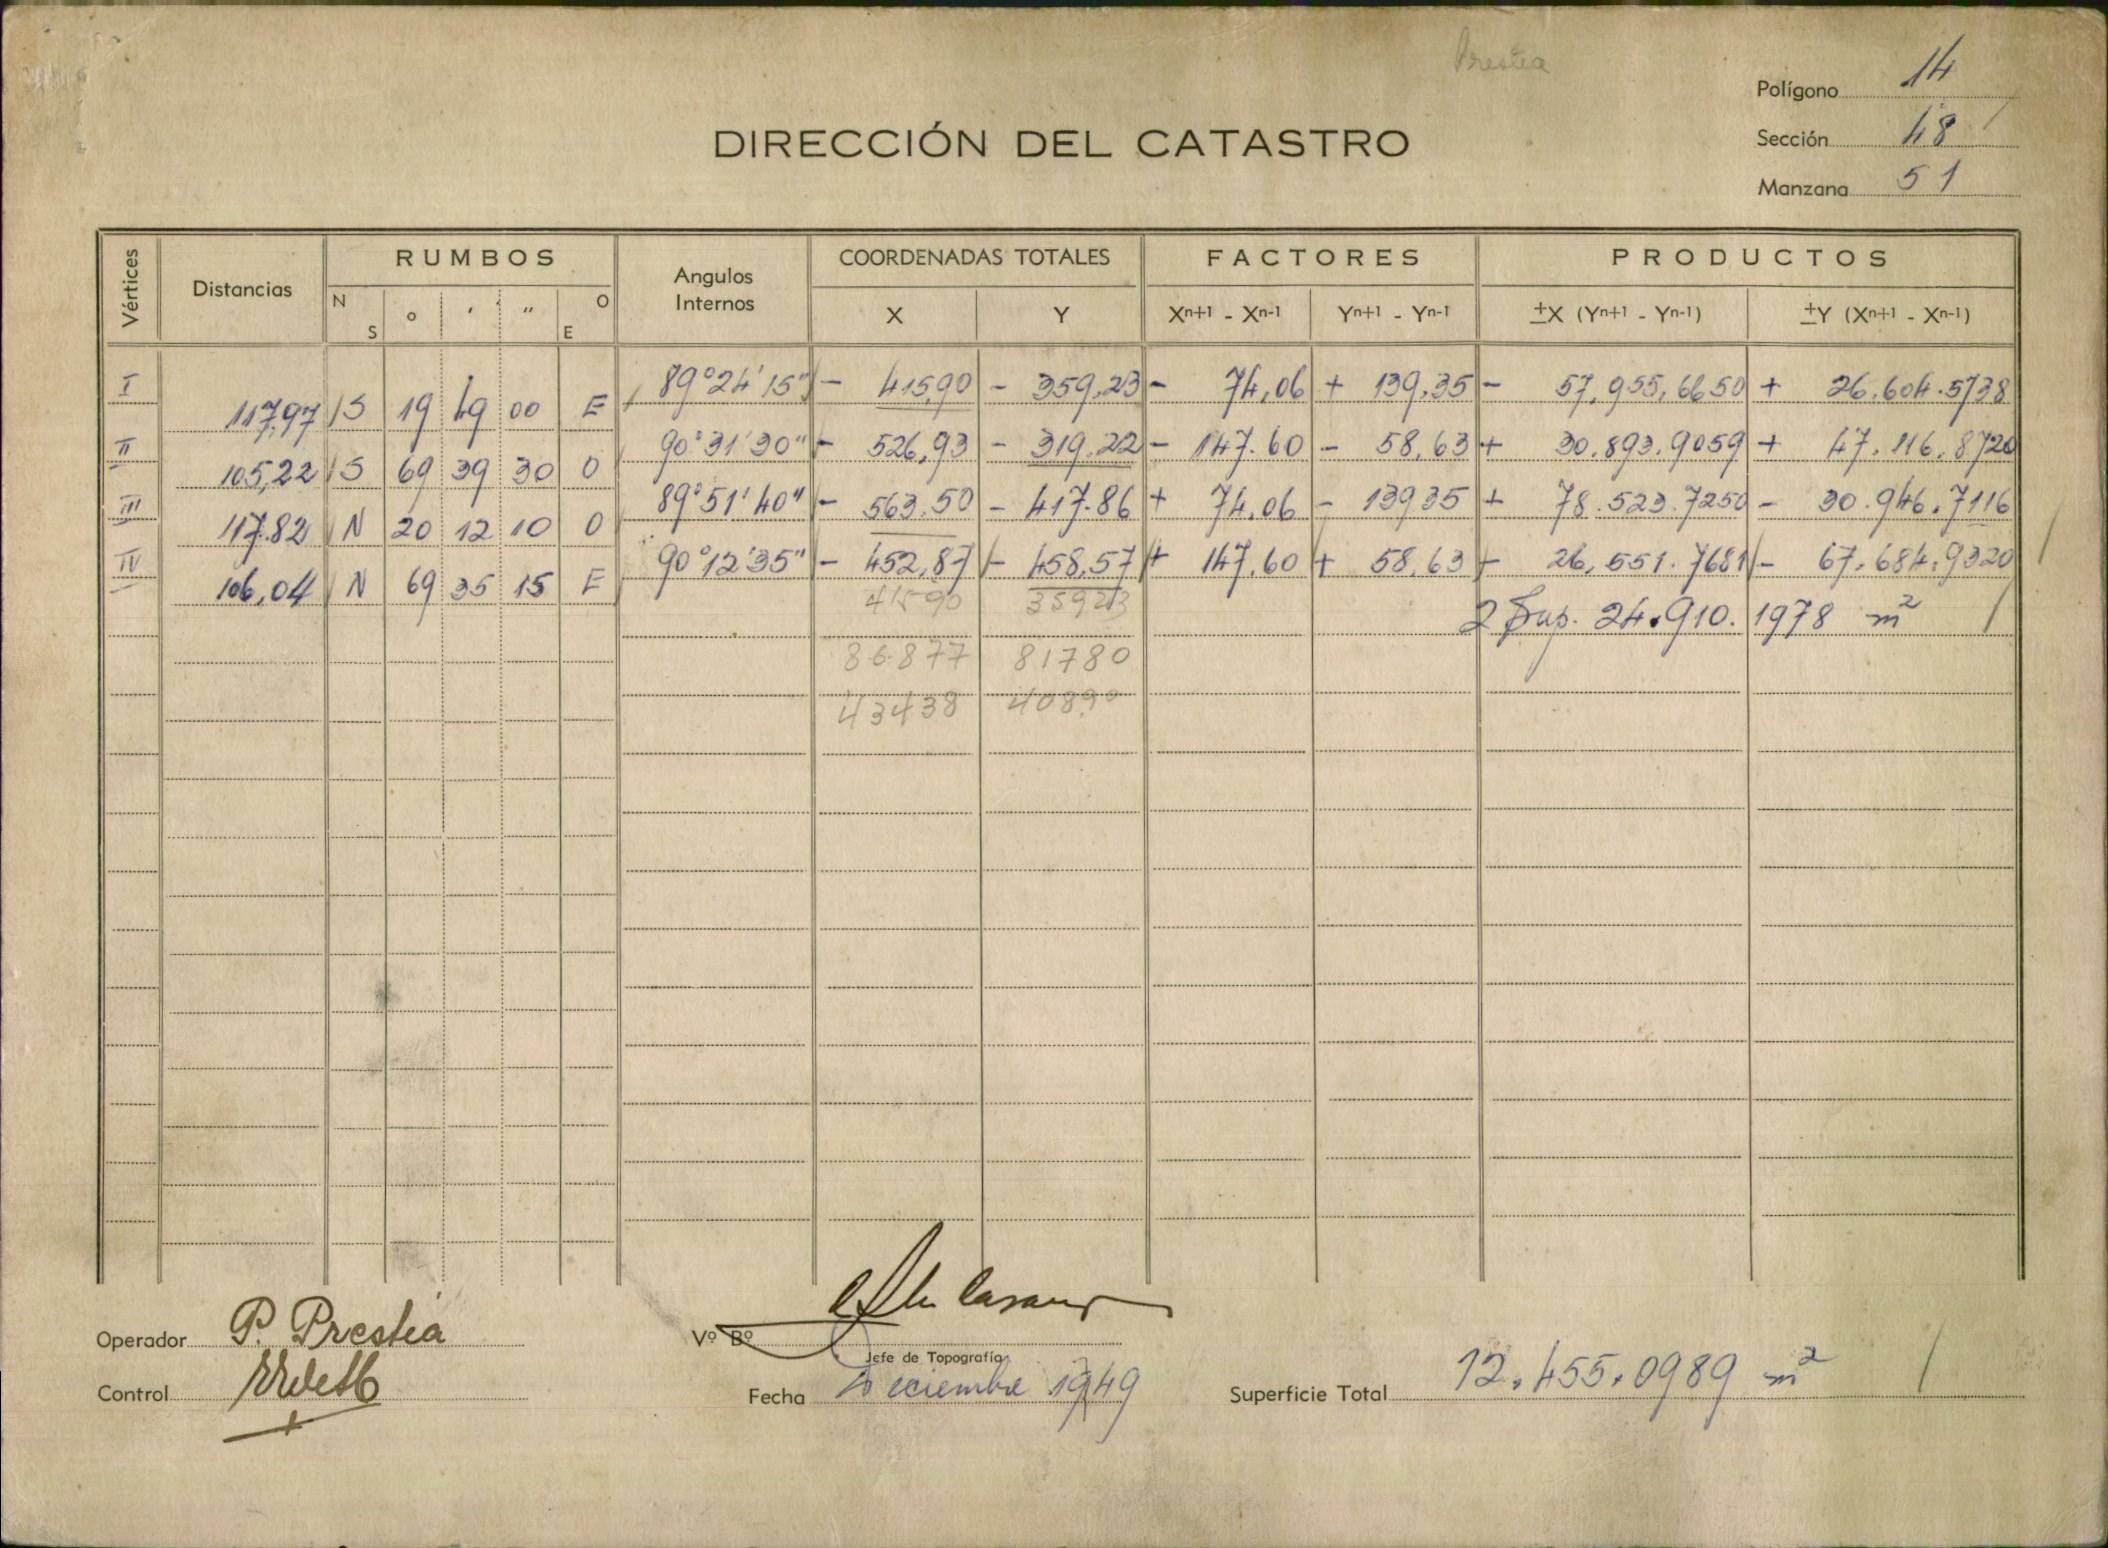 Prestia
Polígono 14
Sección 48
Manzana 51
DIRECCIÓN DEL CATASTRO
Vértices Distancias RUMBOS Angulos Internos COORDENADAS TOTALES FACTORES PRODUCTOS
N S ° ' " O E X Y Xn+1 - Xn-1 Yn+1 - Yn-1 ±X (Yn+1 - Yn-1) ±Y (Xn+1 - Xn-1)
I 89°24'15" - 415,90 - 359,23 - 74,06 + 139,35 - 57,955,6650 + 26.604.5738
117,97 S 19 49 00 E
II 90°31'30" - 526,93 - 319,22 - 147.60 - 58,63 + 30.893.9059 + 47.116.8720
105,22 S 69 39 30 O
III 89°51'40" - 563.50 - 417.86 + 74,06 - 13935 + 78.523.7250 - 30.946.7116
117.82 N 20 12 10 O
IV 90°12'35" - 452,87 - 458,57 + 147,60 + 58,63 - 26,551.7681 - 67.684,9320
106,04 N 69 35 15 E
41590 35923
2 Sup. 24.910.1978 m²
86877 81780
43438 40890
Operador P. Prestia
Vº Bº
Jefe de Topografía
Control
Fecha Deciembre 1949
Superficie Total 12.455.0989 m²